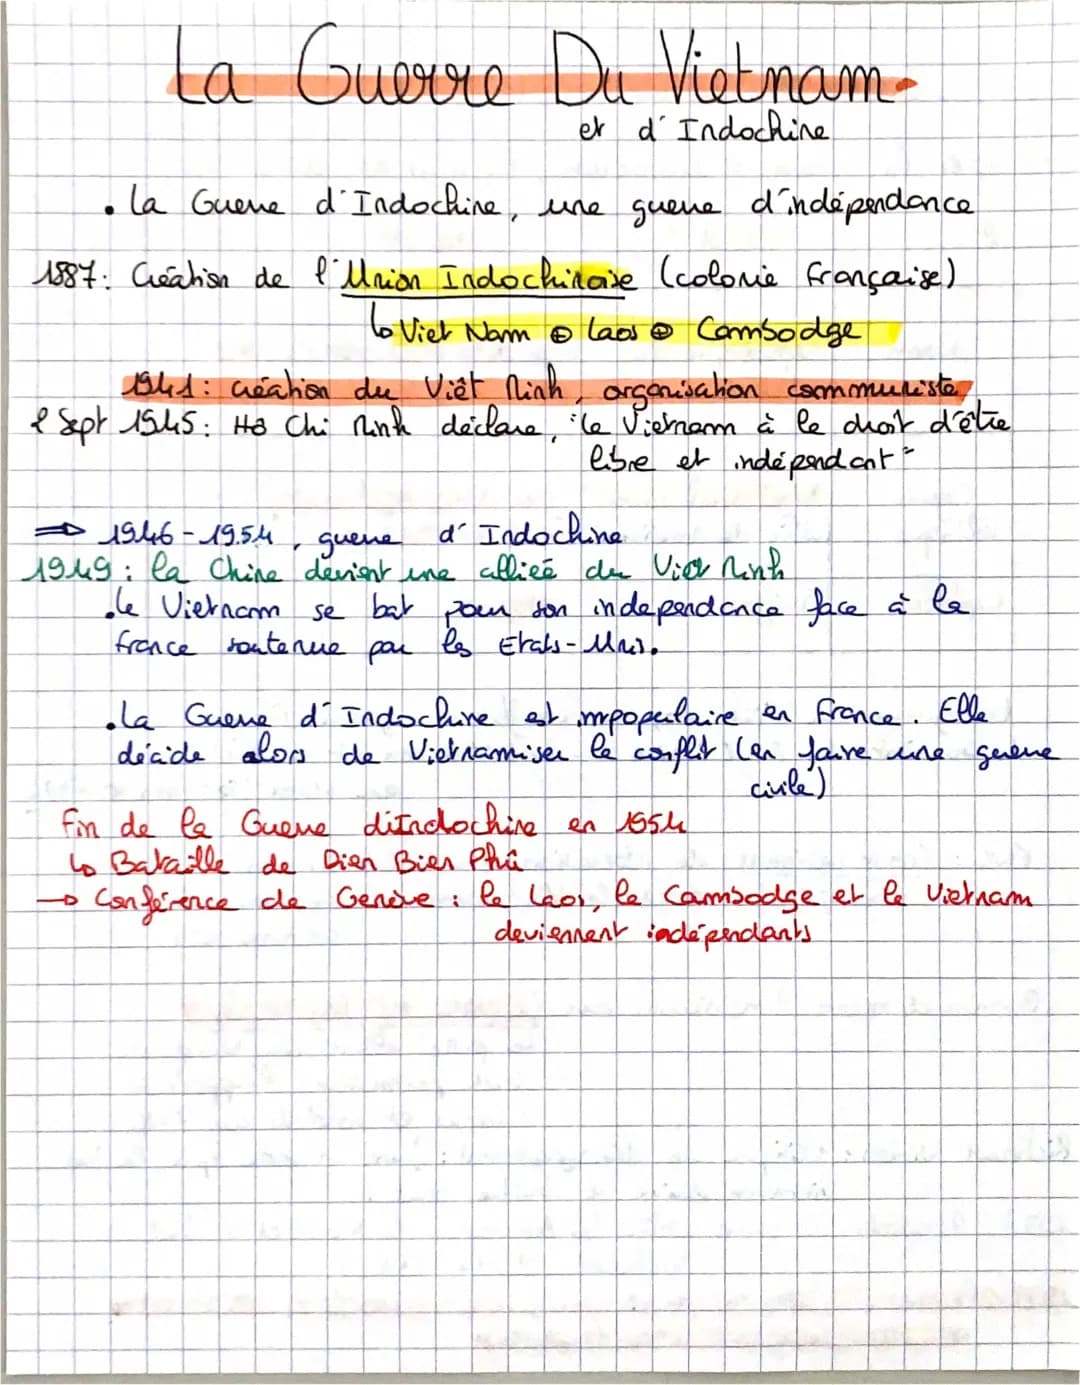 La Guerre Du Vietnam
et d'Indochine
. La Guerre d'Indochine, une guerre d'indépendance
1887: Création de l'Union Indochinoise (colonie française)
↳ Viet Nam ⊕ Laos ⊕ Cambodge
1941: création du Viêt Minh, organisation communiste,
2 Sept 1945: Hô Chi Minh déclare, "le Vietnam à le droit d'être
libre et indépendant"
⇒ 1946-1954, guerre d'Indochine
1949: la Chine devient une alliée du Viet Minh
. le Vietnam se bat pour son indépendance face à la
france soutenue par les Etats-Unis.
. La Guerre d'Indochine est impopulaire en France. Elle
décide alors de Vietnamiser le conflit (en faire une guerre
civile)
fin de la Guerre d'Indochine en 1954
↳ Bataille de Dien Bien Phû
→ Conférence de Genève: le Laos, le Cambodge et le Vietnam
deviennent indépendants